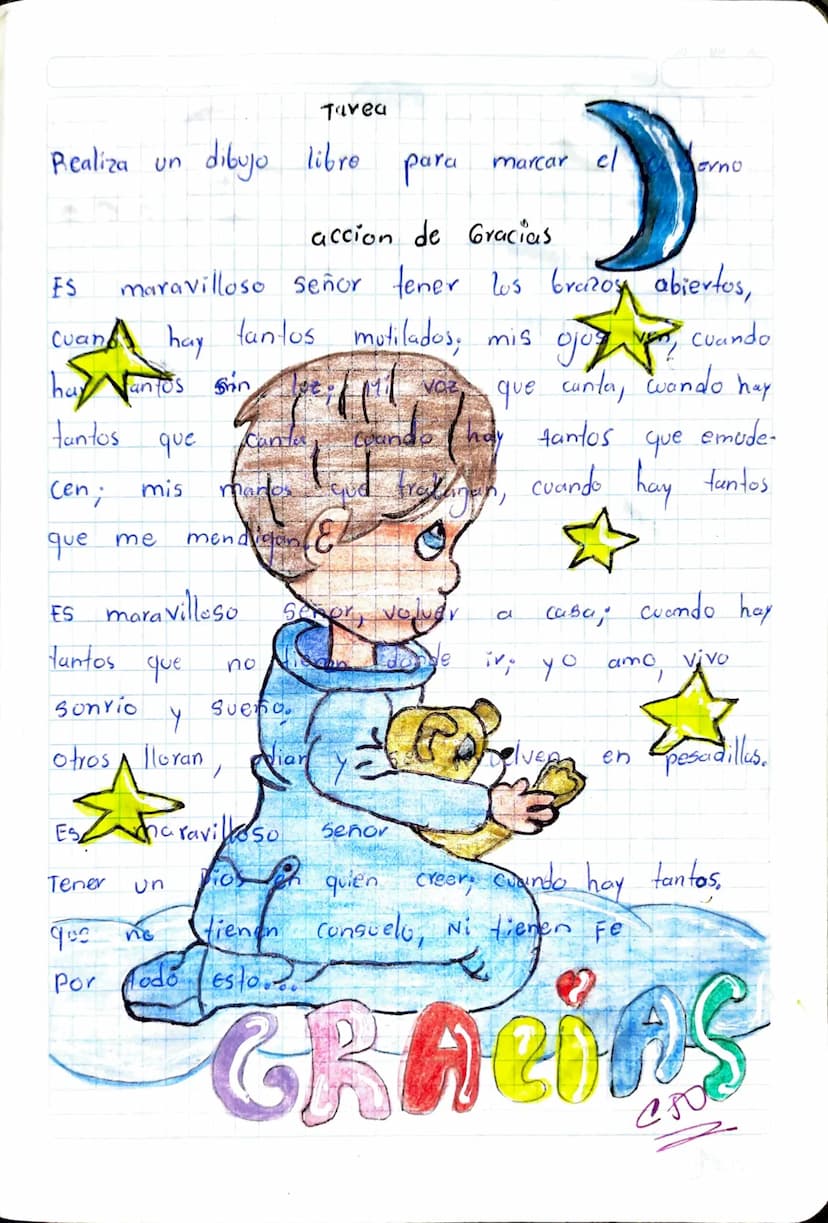 Tarea
Realiza un dibujo libre para marcar el cuaderno
accion de Gracias
Es maravilloso señor tener los brazos abiertos,
cuando hay tantos mutilados; mis ojos ven, cuando
hay tantos sin luz; Mi voz que canta, cuando hay
tantos que canta, cuando hay tantos que emude-
cen; mis manos que trabajan, cuando hay tantos
que me mendigan.
Es maravilloso señor, volver a casa; cuando hay
tantos que no tienen donde ir; yo amo, vivo
sonrio y sueño.
otros lloran, odian y se vuelven en pesadillas.
Es maravilloso señor
Tener un Dios en quien creer; cuando hay tantos,
que no tienen consuelo, Ni tienen Fe
Por todo esto....
GRACiAS